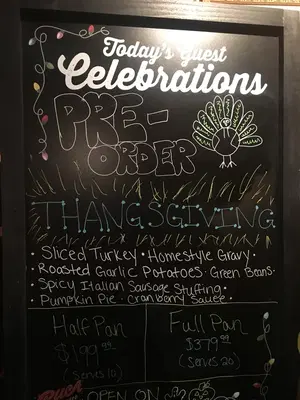 Today's Guest
Celebrations
PRE-
ORDER
THANGSGIVING
• Sliced Turkey • Homestyle Gravy •
• Roasted Garlic Potatoes • Green Beans •
• Spicy Italian Sausage Stuffing •
• Pumpkin Pie • Cranberry Sauce •
Half Pan
$199.00
(Serves 10)
Full Pan
$379.00
(Serves 20)
OPEN ON